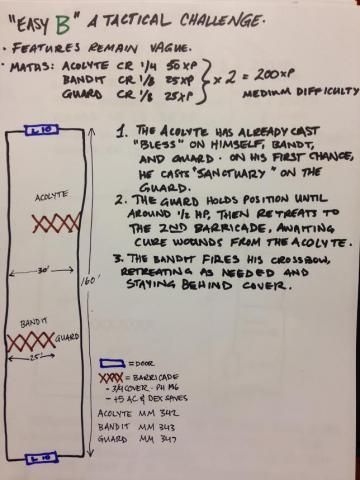 "EASY B" A TACTICAL CHALLENGE.
· FEATURES REMAIN VAGUE.
· MATHS: ACOLYTE CR 1/4 50 XP
BANDIT CR 1/8 25 XP
GUARD CR 1/8 25 XP
x 2 = 200 XP
MEDIUM DIFFICULTY
1. THE ACOLYTE HAS ALREADY CAST
"BLESS" ON HIMSELF, BANDT,
AND GUARD. ON HIS FIRST CHANCE,
HE CASTS "SANCTUARY" ON THE
GUARD.
2. THE GUARD HOLDS POSITION UNTIL
AROUND 1/2 HP, THEN RETREATS TO
THE 2ND BARRICADE, AWAITING
CURE WOUNDS FROM THE ACOLYTE.
3. THE BANDIT FIRES HIS CROSSBOW,
RETREATING AS NEEDED AND
STAYING BEHIND COVER.
L 10
ACOLYTE
30'
160'
BANDIT
GUARD
25'
L 10
= DOOR
= BARRICADE
- 3/4 COVER - PH 196
- +5 AC & DEX SAVES
ACOLYTE MM 342
BANDIT MM 343
GUARD MM 347